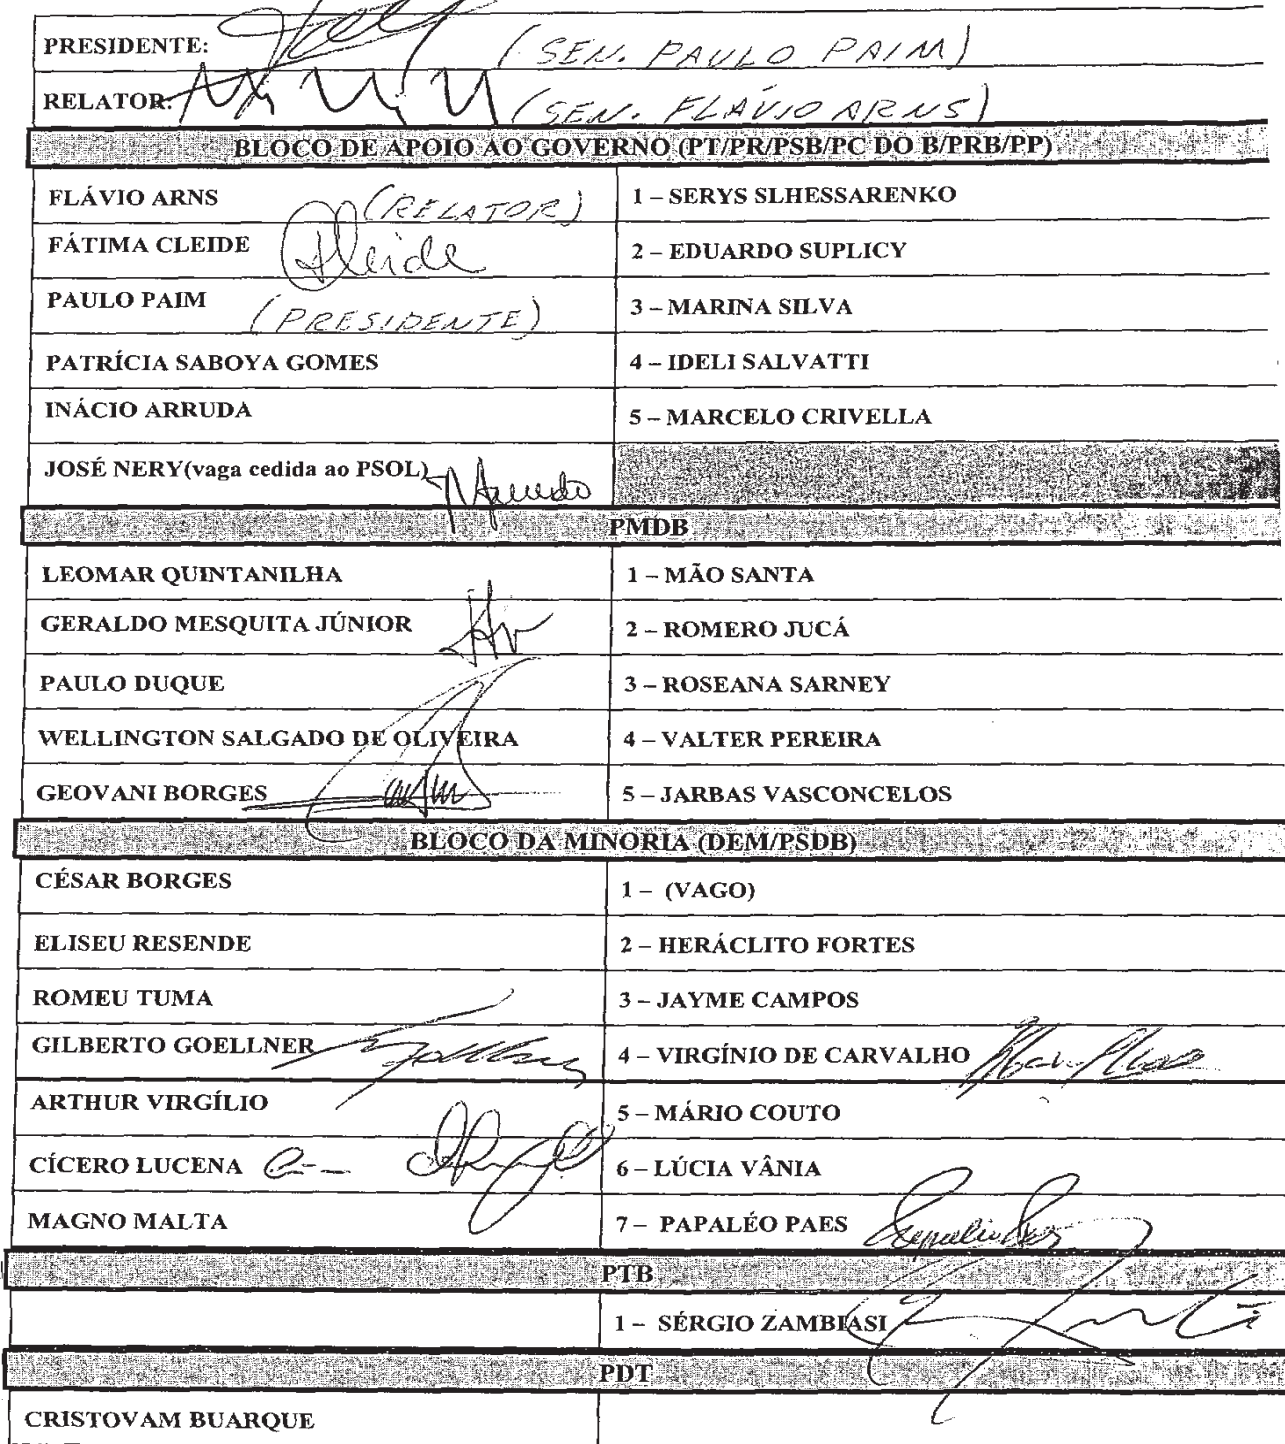 PRESIDENTE: (SEN. PAULO PAIM)
RELATOR: (SEN. FLÁVIO ARNS)
BLOCO DE APOIO AO GOVERNO (PT/PR/PSB/PC DO B/PRB/PP)
FLÁVIO ARNS (RELATOR) 1 – SERYS SLHESSARENKO
FÁTIMA CLEIDE Cleide 2 – EDUARDO SUPLICY
PAULO PAIM (PRESIDENTE) 3 – MARINA SILVA
PATRÍCIA SABOYA GOMES 4 – IDELI SALVATTI
INÁCIO ARRUDA 5 – MARCELO CRIVELLA
JOSÉ NERY(vaga cedida ao PSOL)
PMDB
LEOMAR QUINTANILHA 1 – MÃO SANTA
GERALDO MESQUITA JÚNIOR 2 – ROMERO JUCÁ
PAULO DUQUE 3 – ROSEANA SARNEY
WELLINGTON SALGADO DE OLIVEIRA 4 – VALTER PEREIRA
GEOVANI BORGES 5 – JARBAS VASCONCELOS
BLOCO DA MINORIA (DEM/PSDB)
CÉSAR BORGES 1 – (VAGO)
ELISEU RESENDE 2 – HERÁCLITO FORTES
ROMEU TUMA 3 – JAYME CAMPOS
GILBERTO GOELLNER 4 – VIRGÍNIO DE CARVALHO
ARTHUR VIRGÍLIO 5 – MÁRIO COUTO
CÍCERO LUCENA 6 – LÚCIA VÂNIA
MAGNO MALTA 7 – PAPALÉO PAES
PTB
1 – SÉRGIO ZAMBIASI
PDT
CRISTOVAM BUARQUE